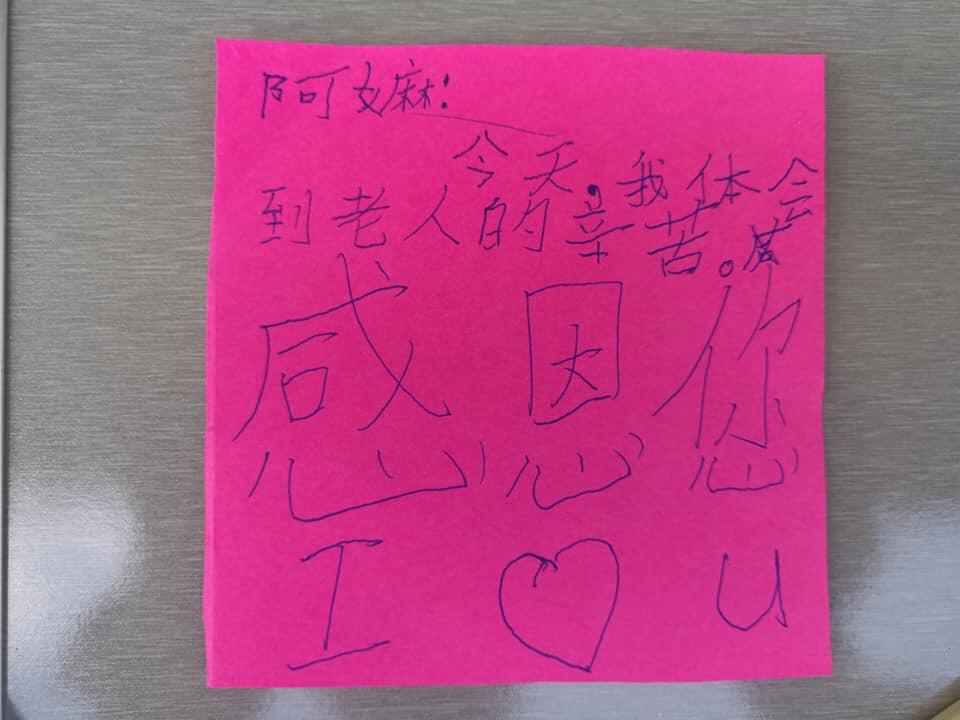 阿嫲！
今天，我体会
到老人的辛苦。
感恩您
I ♡ U